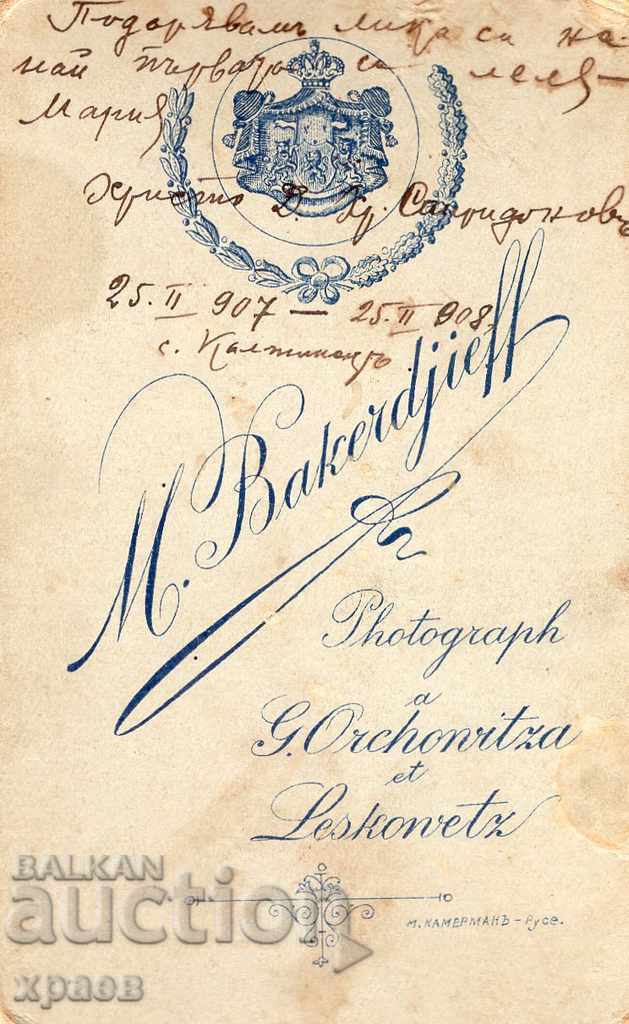 Подарявамъ лика си на
най първата си леля
Мария
Христо В. Хр. Спиридоновъ
25.II 907 – 25.II 908.
с. Калтинецъ
M. Bakerdjieff
Photograph
à
G. Orchowitza
et
Leskowetz
М. КАМЕРМАНЪ – Русе.
BALKAN
auction
храов